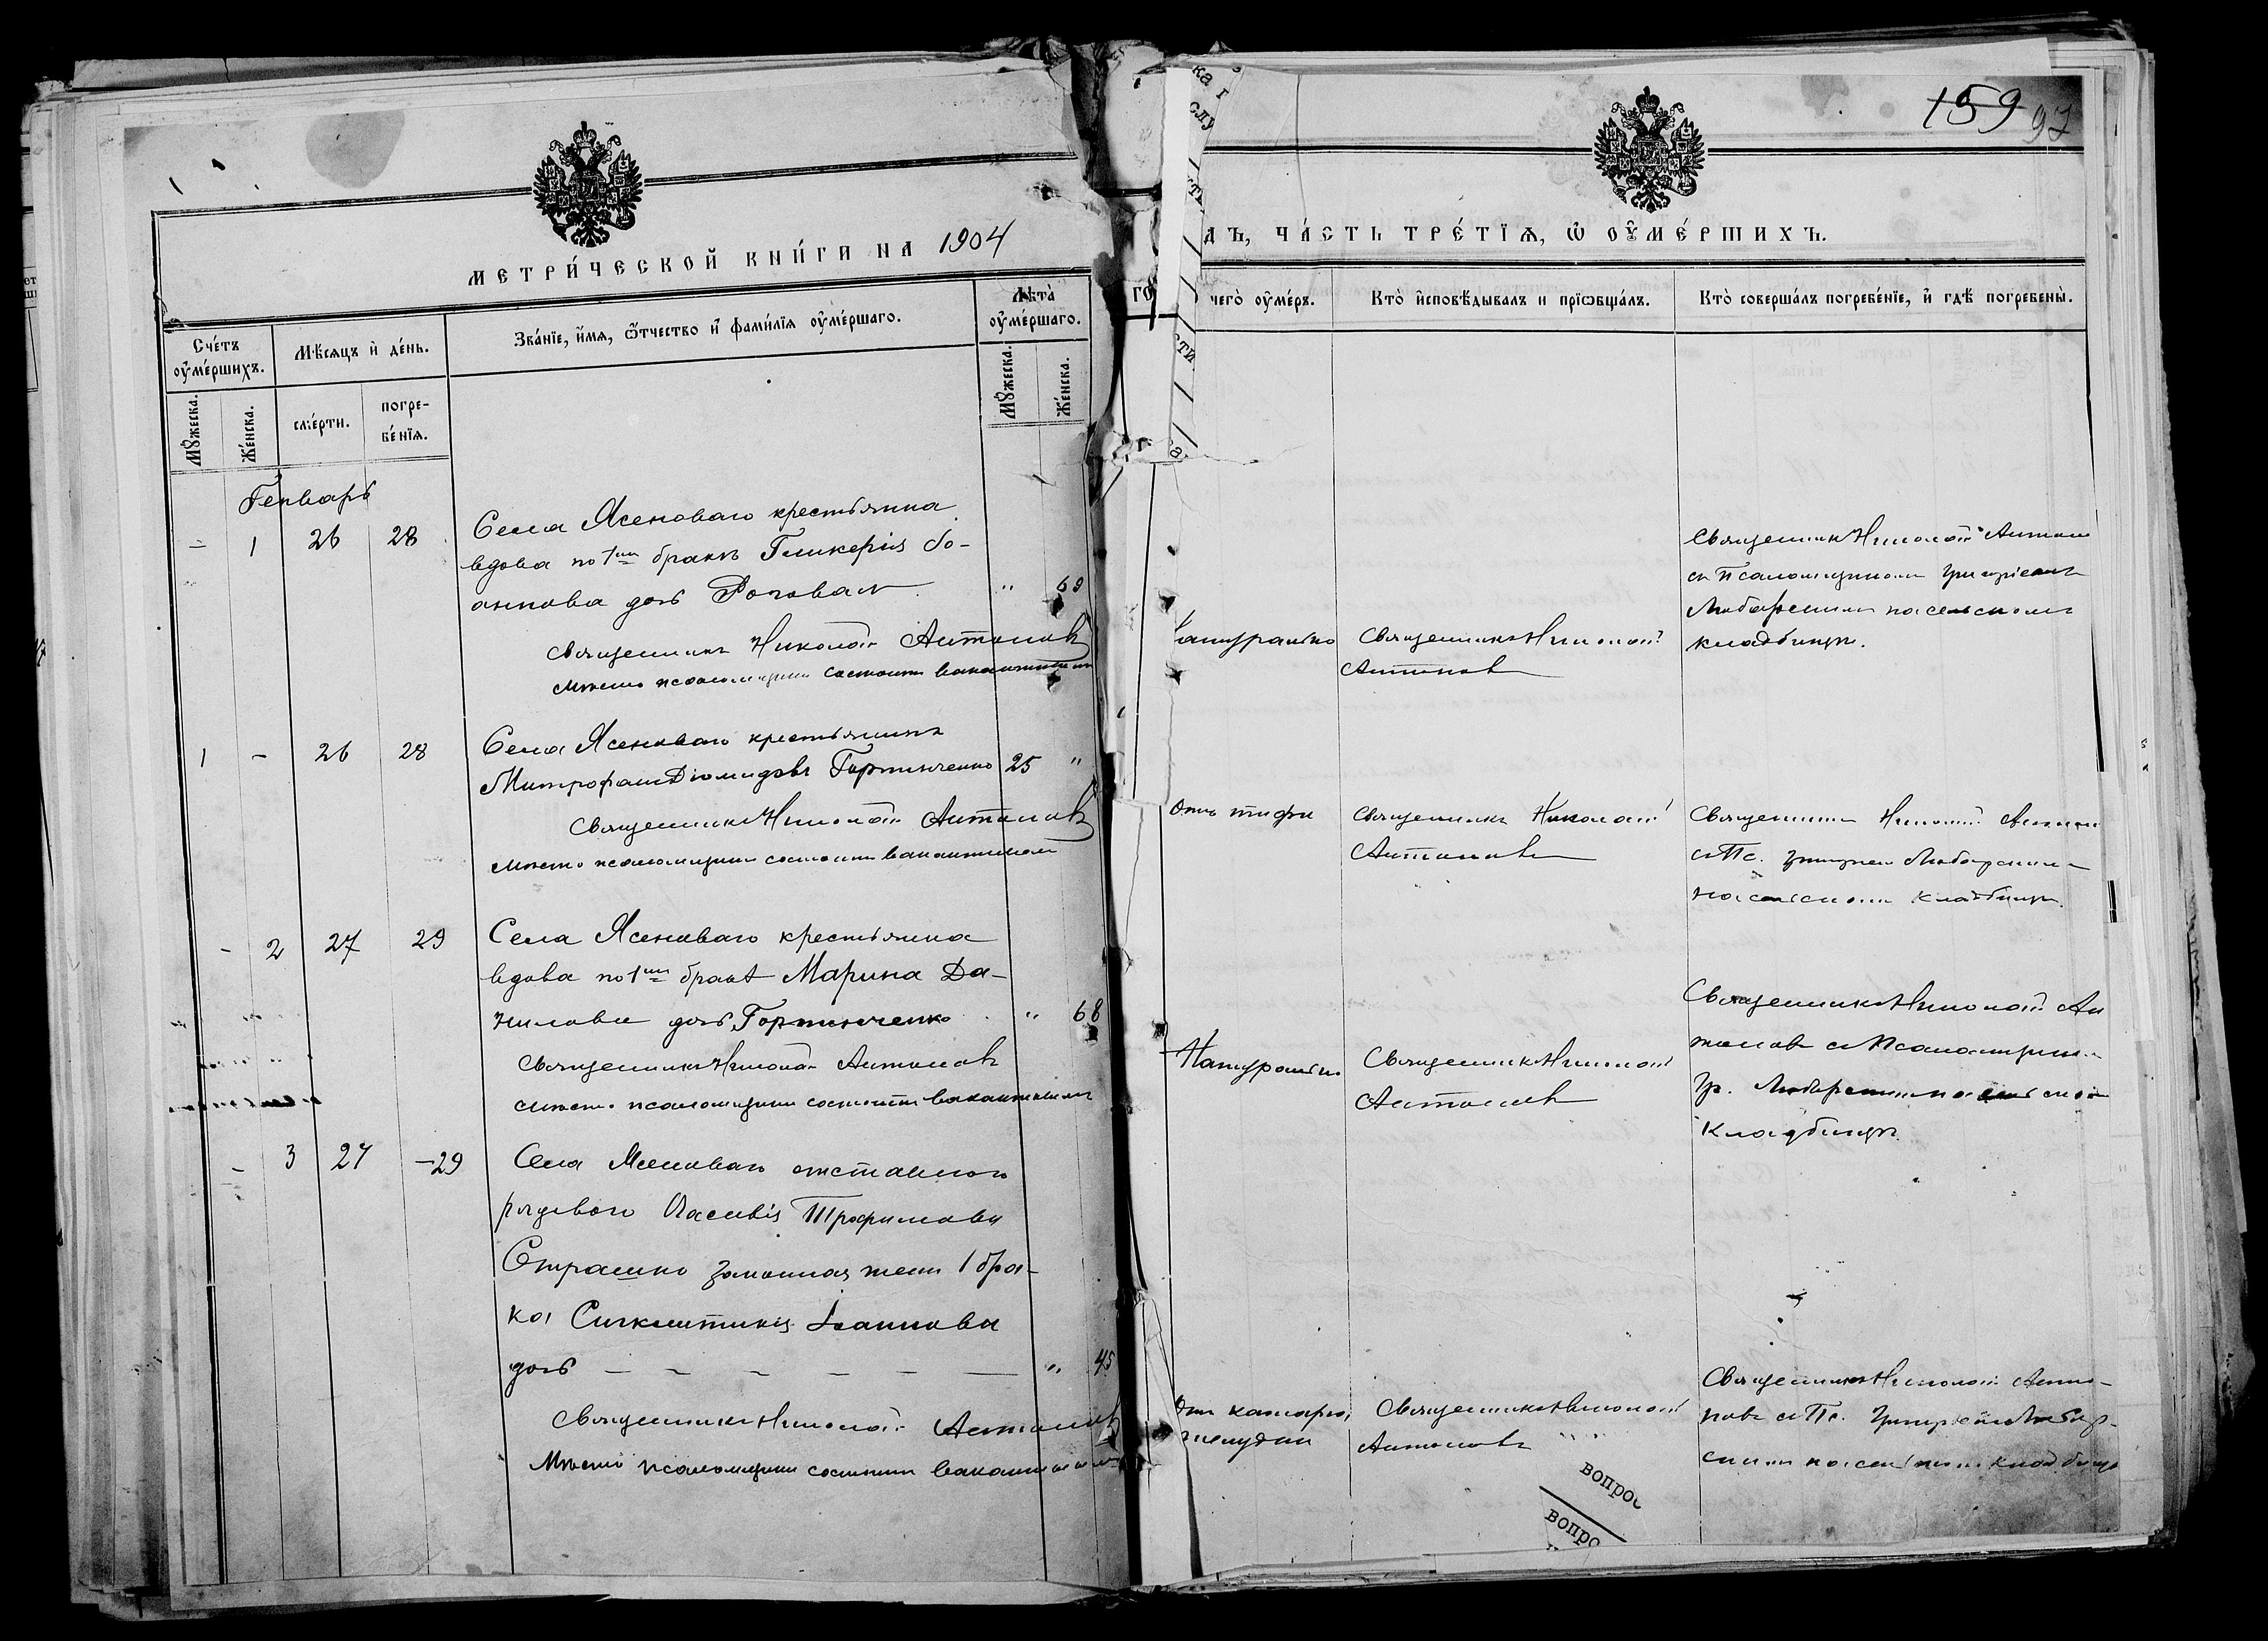 159 97
МЕТРИ́ЧЕСКОЙ КНИ́ГИ НА 1904
ДЪ, ЧА́СТЬ ТРЕ́ТЇѦ, Ѽ ОУ҆МЕ́РШИХЪ.
Сче́тъ оу҆ме́ршихъ.
Мѣ́сѧцъ и҆ де́нь.
Зва́нїе, и҆́мѧ, ѻ҆́тчество и҆ фами́лїѧ оу҆ме́ршаго.
Лѣта̀ оу҆ме́ршаго.
чегѡ̀ оу҆ме́ръ.
Кто̀ и҆сповѣ́дывалъ и҆ прїѡбща́лъ.
Кто̀ соверша́лъ погребе́нїе, и҆ гдѣ̀ погребены̀.
Мꙋ́жеска.
Же́нска.
сме́рти.
погре-
бе́нїѧ.
Мꙋ́жеска.
Же́нска.
Генварь
– 1 26 28
Села Ясеноваго крестьянка
вдова по 1мъ бракѣ Гликерія Іо-
аннова дочь Роговая " 69
Священникъ Николай Антоновъ
Мѣсто псаломщика состоитъ вакантнымъ
Натурально
Священникъ Николай
Антоновъ
Священникъ Николай Антонов
съ Псаломщикомъ Григоріемъ
Любарскимъ на сельскомъ
кладбищѣ.
1 – 26 28
Села Ясеноваго крестьянинъ
Митрофанъ Діомидовъ Гортинченко 25 "
Священникъ Николай Антоновъ
Мѣсто псаломщика состоитъ вакантнымъ
Отъ тифа
Священникъ Николай
Антоновъ
Священникъ Николай Антонов
съ Пс. Григоріем Любарскимъ
на сельскомъ кладбищѣ.
– 2 27 29
Села Ясеноваго крестьянка
вдова по 1мъ бракѣ Марина Да-
нилова дочь Гортинченко " 68
Священникъ Николай Антоновъ
Мѣсто псаломщика состоитъ вакантнымъ
Натурально
Священникъ Николай
Антоновъ
Священникъ Николай Ан
тоновъ съ Псаломщиком
Гр. Любарскимъ на сельском
Кладбищѣ.
– 3 27 – 29
Села Ясеноваго отставного
рядового Трофимова
Страшко законная жена 1 бра-
ка Синклитикія Іоаннова
дочь – – – – – – " 45
Священникъ Николай Антоновъ
Мѣсто псаломщика состоитъ вакантнымъ
Отъ катарра
желудка
Священникъ Николай
Антоновъ
Священникъ Николай Анто-
новъ съ Пс. Григоріемъ Любар-
скимъ на сельском кладбищѣ
вопрос
вопро